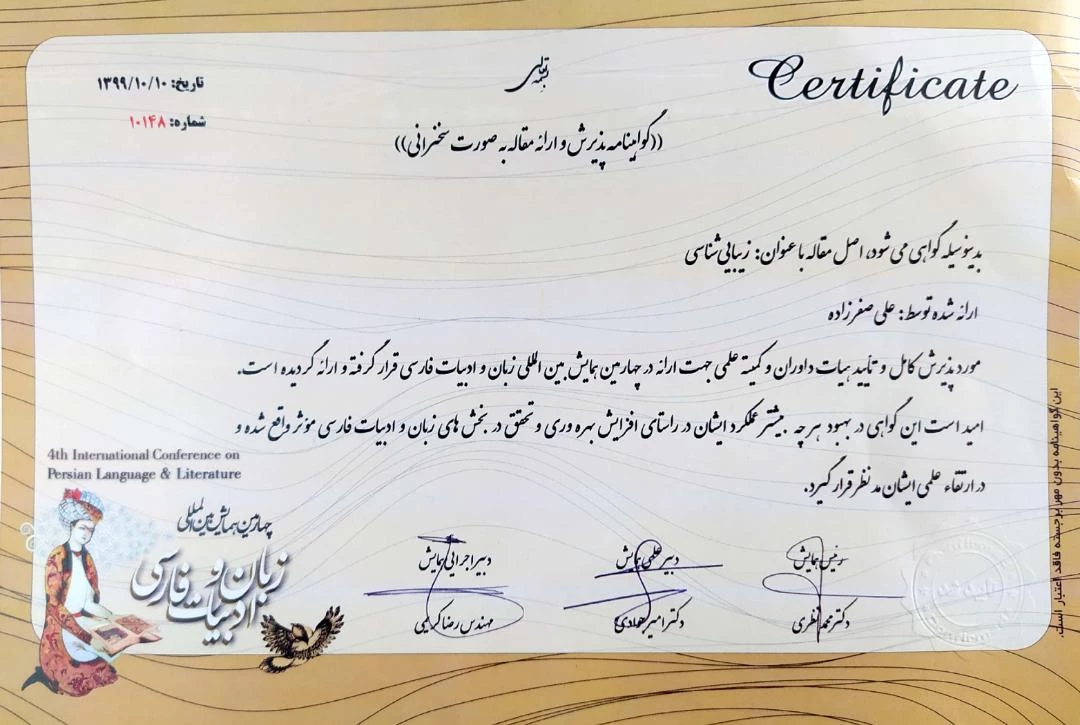 Certificate
بسمه تعالی
تاریخ: ۱۳۹۹/۱۰/۱۰
شماره: ۱۰۱۴۸
((گواهینامه پذیرش و ارائه مقاله به صورت سخنرانی))
بدینوسیله گواهی می شود، اصل مقاله با عنوان: زیبایی شناسی
ارائه شده توسط: علی صفرزاده
مورد پذیرش کامل و تأیید هیات داوران و کمیته علمی جهت ارائه در چهارمین همایش بین المللی زبان و ادبیات فارسی قرار گرفته و ارائه گردیده است.
امید است این گواهی در بهبود هرچه بیشتر عملکرد ایشان در راستای افزایش بهره وری و تحقق در بخش های زبان و ادبیات فارسی مؤثر واقع شده و
در ارتقاء علمی ایشان مد نظر قرار گیرد.
رئیس همایش
دکتر محمد نظری
دبیر علمی همایش
دبیر اجرایی همایش
مهندس رضا کریمی
4th International Conference on
Persian Language & Literature
چهارمین همایش بین المللی
زبان و
ادبیات فارسی
این گواهینامه بدون مهر برجسته فاقد اعتبار است.